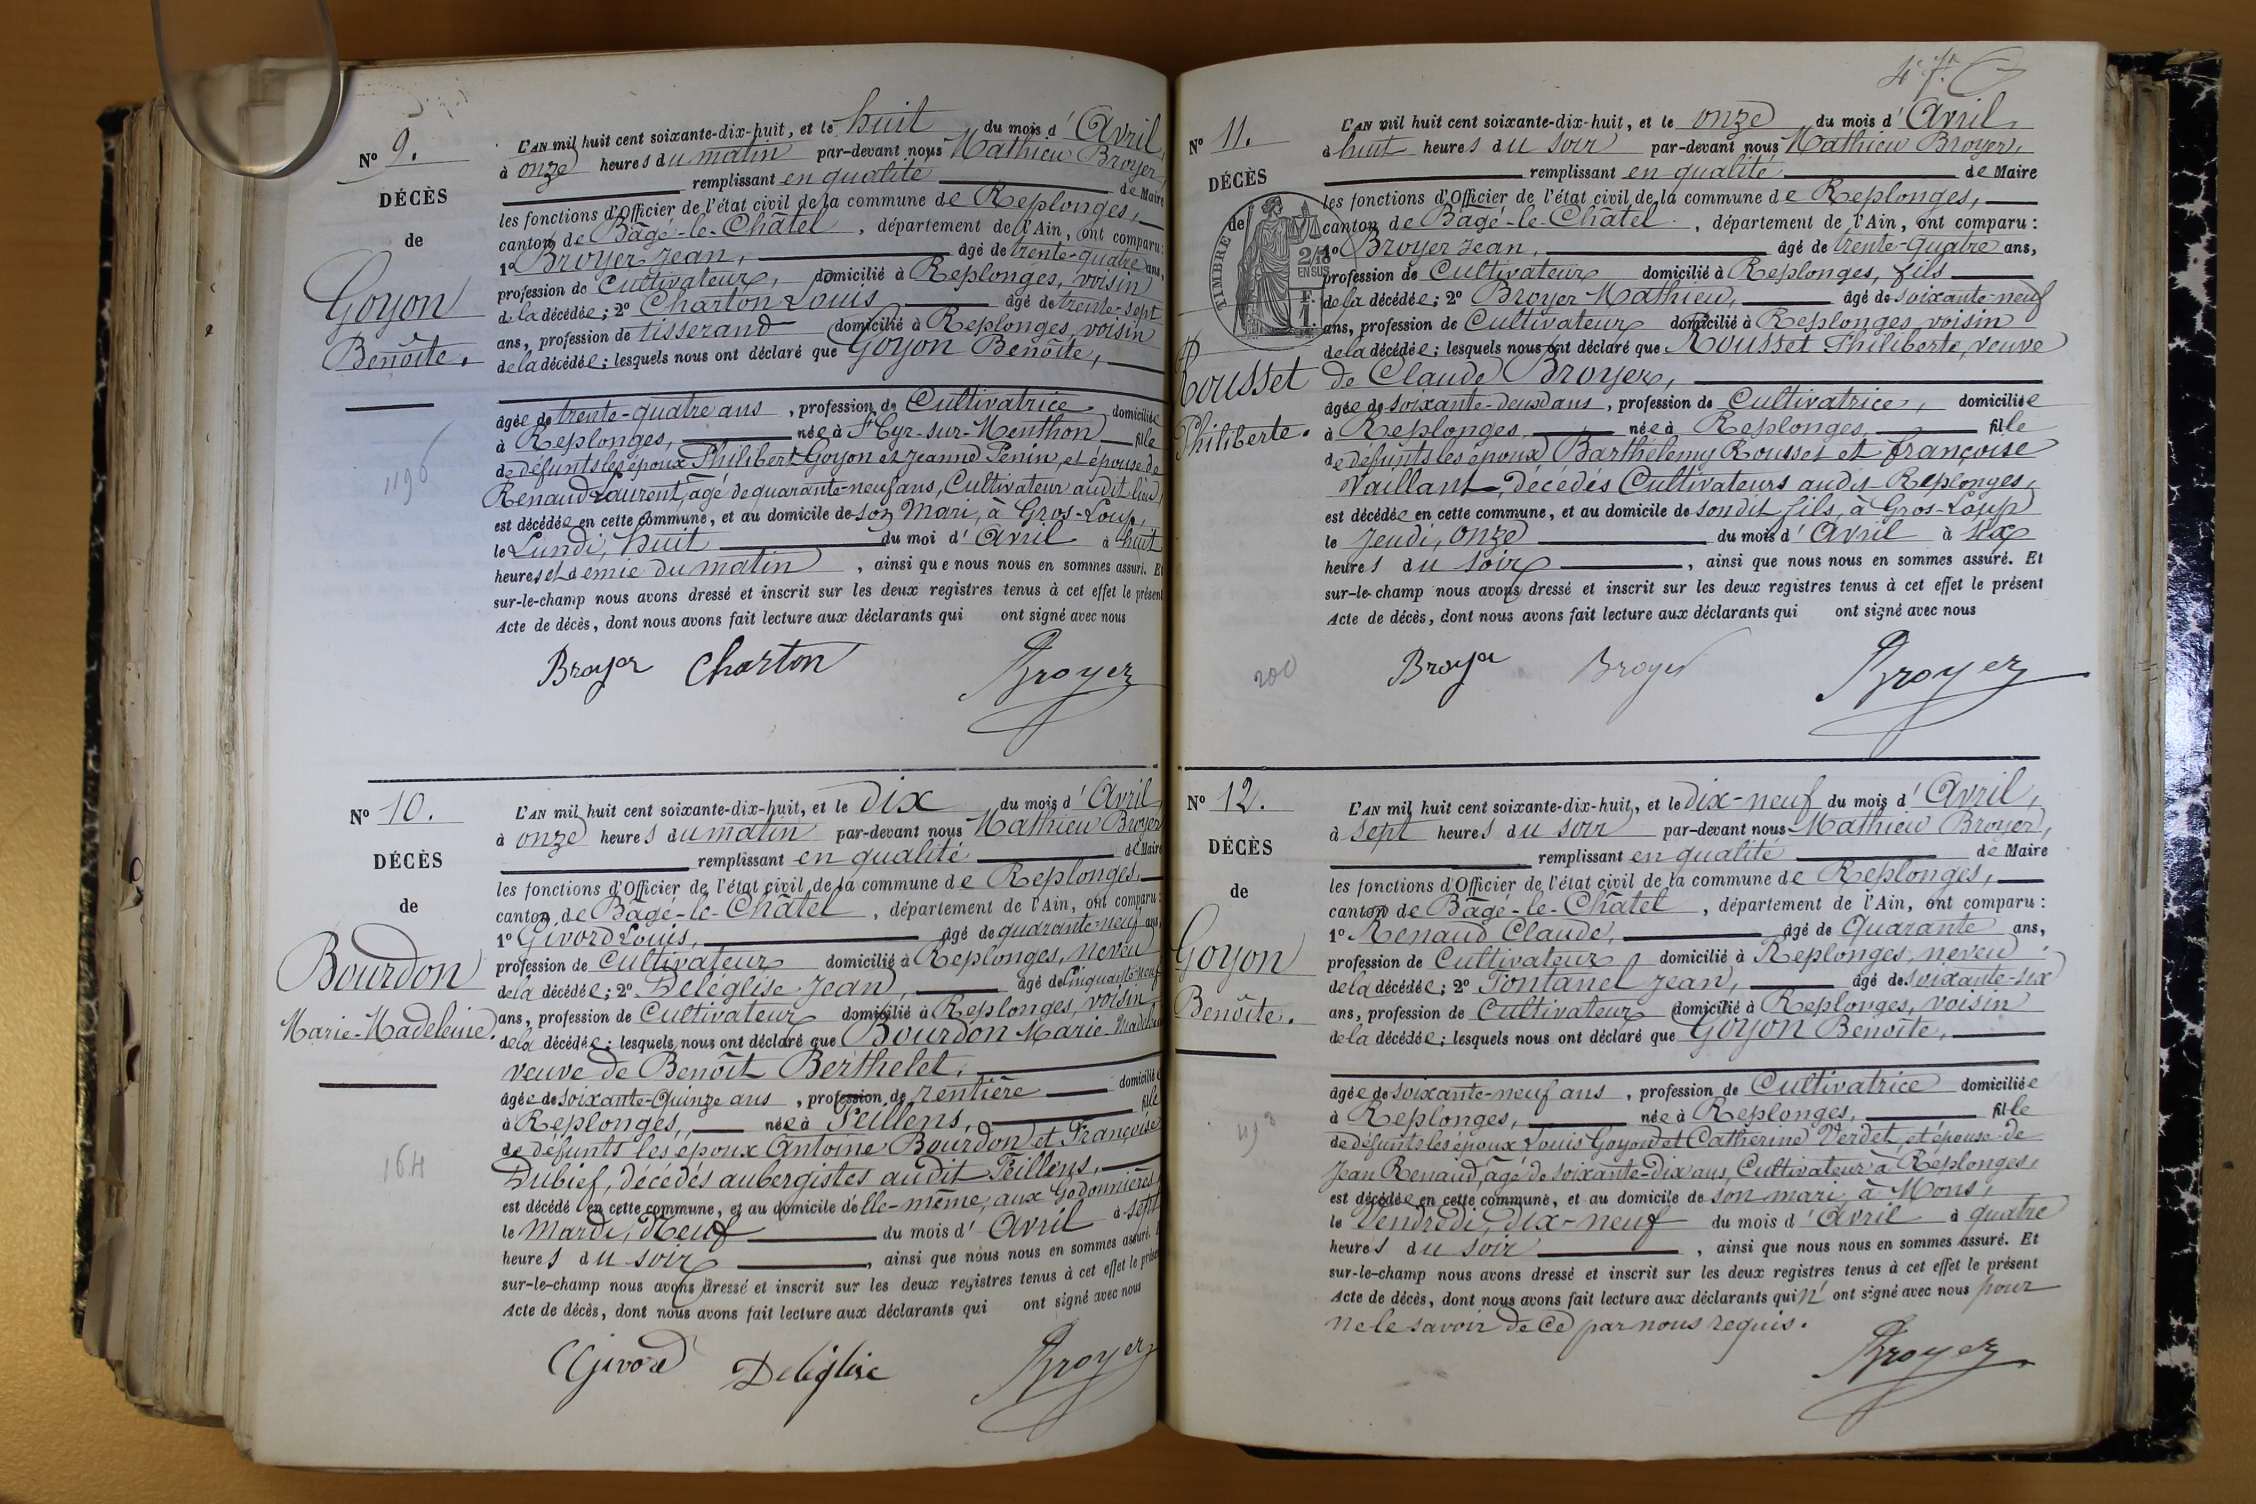 Nº 9.
DÉCÈS
de
Goyon
Benoîte.
1196
L'AN mil huit cent soixante-dix-huit, et le huit du mois d' Avril,
à onze heures du matin par-devant nous Mathieu Broyer,
remplissant en qualité de Maire
les fonctions d'Officier de l'état civil de la commune de Replonges,
canton de Bâgé-le-Châtel, département de l'Ain, ont comparu:
1º Broyer Jean, âgé de trente-quatre ans,
profession de Cultivateur, domicilié à Replonges, voisin
de la décédée; 2º Charton Louis âgé de trente-sept
ans, profession de tisserand domicilié à Replonges, voisin
de la décédée; lesquels nous ont déclaré que Goyon Benoîte,
âgée de trente-quatre ans, profession de Cultivatrice domiciliée
à Replonges, née à St Cyr-sur-Menthon fille
de défunts les époux Philibert Goyon et Jeanne Penin, et épouse de
Renaud Laurent, âgé de quarante-neuf ans, Cultivateur audit lieu,
est décédée en cette commune, et au domicile de son Mari, à Gros-Loup,
le Lundi, huit du moi d' Avril à huit
heures et demie du matin, ainsi que nous nous en sommes assuré. Et
sur-le-champ nous avons dressé et inscrit sur les deux registres tenus à cet effet le présent
Acte de décès, dont nous avons fait lecture aux déclarants qui ont signé avec nous
Broyer Charton Broyer
Nº 10.
DÉCÈS
de
Bourdon
Marie-Madeleine.
164
L'AN mil huit cent soixante-dix-huit, et le dix du mois d' Avril,
à onze heures du matin par-devant nous Mathieu Broyer
remplissant en qualité de Maire
les fonctions d'Officier de l'état civil de la commune de Replonges,
canton de Bâgé-le-Châtel, département de l'Ain, ont comparu:
1º Givord Louis, âgé de quarante-neuf ans,
profession de Cultivateur domicilié à Replonges, neveu
de la décédée; 2º Deléglise Jean, âgé de Cinquante-neuf
ans, profession de Cultivateur domicilié à Replonges, voisin,
de la décédée; lesquels nous ont déclaré que Bourdon Marie-Madeleine
veuve de Benoît Berthelet,
âgée de soixante-Quinze ans, profession de rentière domiciliée
à Replonges, née à Feillens, fille
de défunts les époux Antoine Bourdon et Françoise
Dubief, décédés aubergistes audit Feillens,
est décédé en cette commune, et au domicile d'elle-même, aux Godonnières,
le Mardi, Neuf du mois d' Avril à sept
heures du soir, ainsi que nous nous en sommes assuré. Et
sur-le-champ nous avons dressé et inscrit sur les deux registres tenus à cet effet le présent
Acte de décès, dont nous avons fait lecture aux déclarants qui ont signé avec nous
Givord Deléglise Broyer
Nº 11.
DÉCÈS
de
TIMBRE
2/10
EN SUS
F.
1.
Rousset
Philiberte.
200
L'AN mil huit cent soixante-dix-huit, et le onze du mois d' Avril,
à huit heures du soir par-devant nous Mathieu Broyer,
remplissant en qualité de Maire
les fonctions d'Officier de l'état civil de la commune de Replonges,
canton de Bâgé-le-Châtel, département de l'Ain, ont comparu:
1º Broyer Jean, âgé de trente-quatre ans,
profession de Cultivateur domicilié à Replonges, fils
de la décédée; 2º Broyer Mathieu, âgé de soixante-neuf
ans, profession de Cultivateur domicilié à Replonges voisin
de la décédée; lesquels nous ont déclaré que Rousset Philiberte, veuve
de Claude Broyer,
âgée de soixante-deux ans, profession de Cultivatrice, domiciliée
à Replonges, née à Replonges, fille
de défunts les époux Barthélemy Rousset et Françoise
Vaillant, décédés Cultivateurs audit Replonges,
est décédée en cette commune, et au domicile de son dit fils, à Gros-Loup
le Jeudi, onze du mois d' Avril à six
heures du soir, ainsi que nous nous en sommes assuré. Et
sur-le-champ nous avons dressé et inscrit sur les deux registres tenus à cet effet le présent
Acte de décès, dont nous avons fait lecture aux déclarants qui ont signé avec nous
Broyer Broyer Broyer
Nº 12.
DÉCÈS
de
Goyon
Benoîte.
L'AN mil huit cent soixante-dix-huit, et le dix-neuf du mois d' Avril,
à sept heures du soir par-devant nous Mathieu Broyer,
remplissant en qualité de Maire
les fonctions d'Officier de l'état civil de la commune de Replonges,
canton de Bâgé-le-Châtel, département de l'Ain, ont comparu:
1º Renaud Claude, âgé de Quarante ans,
profession de Cultivateur, domicilié à Replonges, neveu
de la décédée; 2º Fontanel Jean, âgé de soixante-six
ans, profession de Cultivateur domicilié à Replonges, voisin
de la décédée; lesquels nous ont déclaré que Goyon Benoîte,
âgée de soixante-neuf ans, profession de Cultivatrice domiciliée
à Replonges, née à Replonges, fille
de défunts les époux Louis Goyon et Catherine Verdet, et épouse de
Jean Renaud, âgé de soixante-dix ans, Cultivateur à Replonges,
est décédée en cette commune, et au domicile de son mari, à Mons,
le Vendredi, dix-neuf du mois d' Avril à quatre
heures du soir, ainsi que nous nous en sommes assuré. Et
sur-le-champ nous avons dressé et inscrit sur les deux registres tenus à cet effet le présent
Acte de décès, dont nous avons fait lecture aux déclarants qui n' ont signé avec nous pour
ne le savoir de ce par nous requis.
Broyer